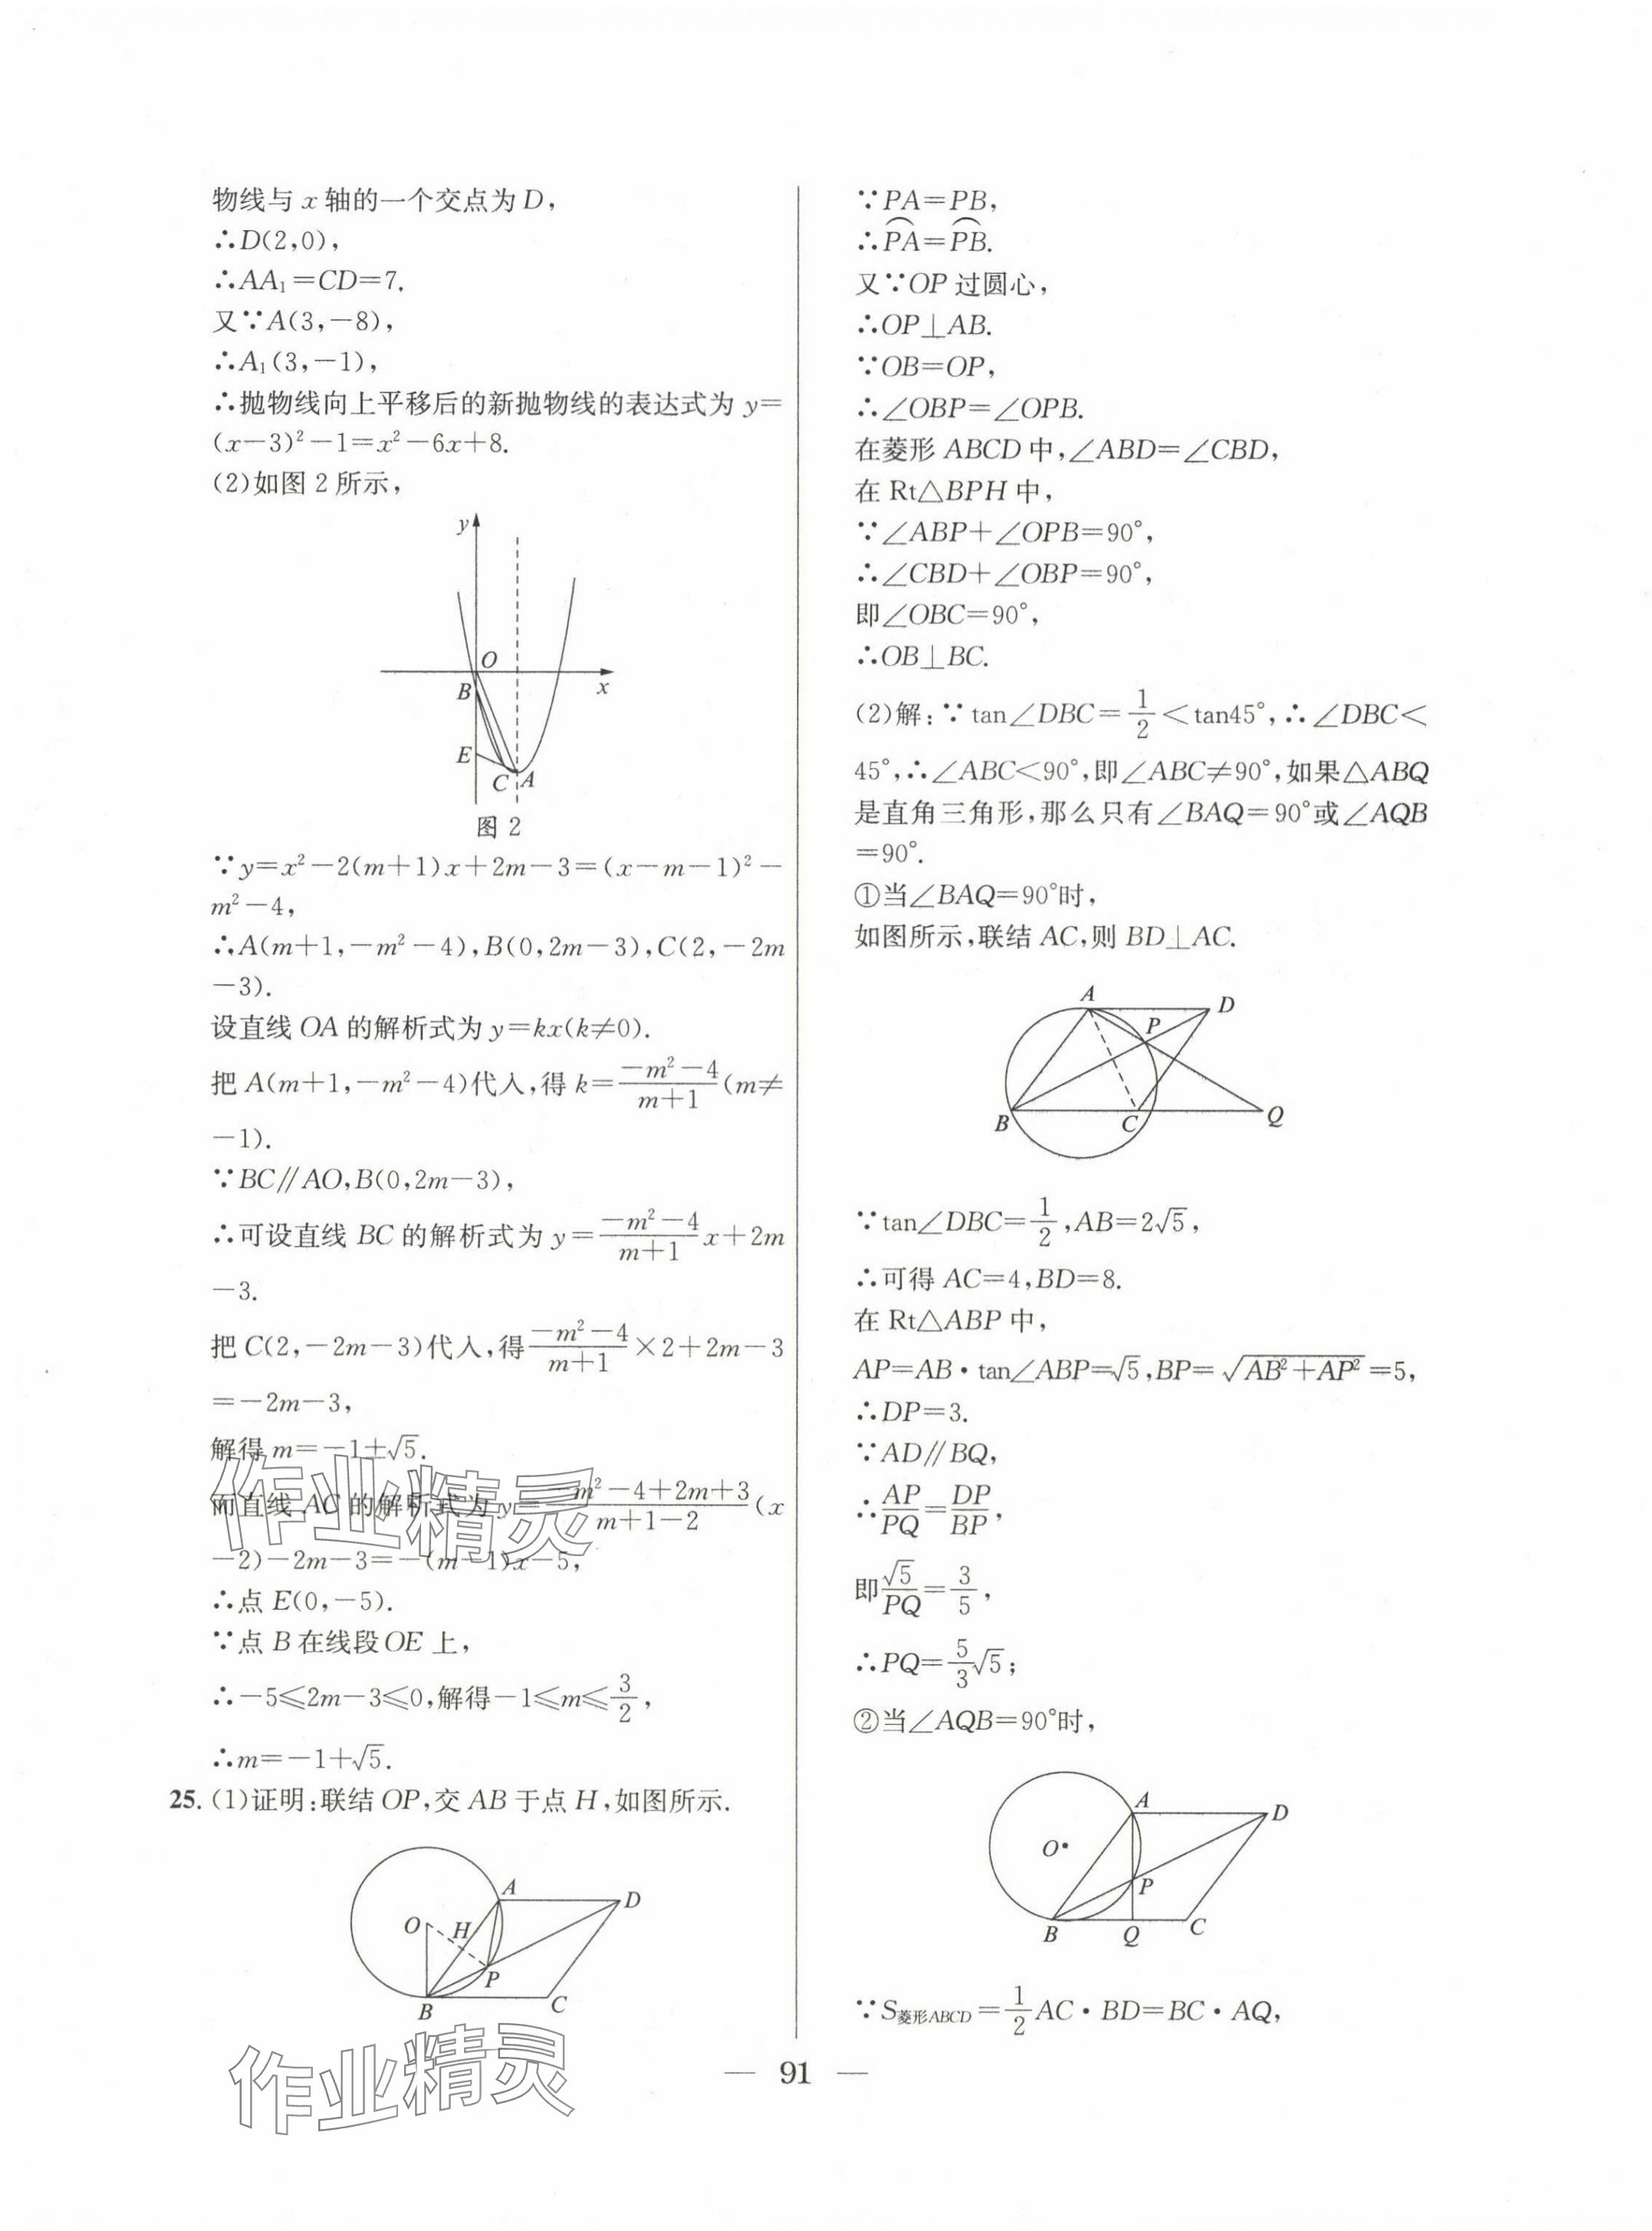 物线与 x 轴的一个交点为 D,
∴D(2,0),
∴AA₁=CD=7.
又∵A(3,-8),
∴A₁(3,-1),
∴抛物线向上平移后的新抛物线的表达式为 y=
(x-3)²-1=x²-6x+8.
(2)如图 2 所示,
y
O
B
x
E
C
A
图 2
∵y=x²-2(m+1)x+2m-3=(x-m-1)²-
m²-4,
∴A(m+1,-m²-4),B(0,2m-3),C(2,-2m
-3).
设直线 OA 的解析式为 y=kx(k≠0).
把 A(m+1,-m²-4)代入,得 k=\frac{-m²-4}{m+1}(m≠
-1).
∵BC∥AO,B(0,2m-3),
∴可设直线 BC 的解析式为 y=\frac{-m²-4}{m+1}x+2m
-3.
把 C(2,-2m-3)代入,得\frac{-m²-4}{m+1}×2+2m-3
=-2m-3,
解得 m=-1±√5.
而直线 AC 的解析式为 y=\frac{-m²-4+2m+3}{m+1-2}(x
-2)-2m-3=-(m-1)x-5,
∴点 E(0,-5).
∵点 B 在线段 OE 上,
∴-5≤2m-3≤0,解得-1≤m≤\frac{3}{2},
∴m=-1+√5.
25. (1)证明:联结 OP,交 AB 于点 H,如图所示.
A
D
O
H
P
B
C
∵PA=PB,
∴\overset{\frown}{PA}=\overset{\frown}{PB}.
又∵OP 过圆心,
∴OP⊥AB.
∵OB=OP,
∴∠OBP=∠OPB.
在菱形 ABCD 中,∠ABD=∠CBD,
在 Rt△BPH 中,
∵∠ABP+∠OPB=90°,
∴∠CBD+∠OBP=90°,
即∠OBC=90°,
∴OB⊥BC.
(2)解:∵tan∠DBC=\frac{1}{2}<tan45°,∴∠DBC<
45°,∴∠ABC<90°,即∠ABC≠90°,如果△ABQ
是直角三角形,那么只有∠BAQ=90°或∠AQB
=90°.
①当∠BAQ=90°时,
如图所示,联结 AC,则 BD⊥AC.
A
D
P
B
C
Q
∵tan∠DBC=\frac{1}{2},AB=2√5,
∴可得 AC=4,BD=8.
在 Rt△ABP 中,
AP=AB·tan∠ABP=√5,BP=\sqrt{AB²+AP²}=5,
∴DP=3.
∵AD∥BQ,
∴\frac{AP}{PQ}=\frac{DP}{BP},
即\frac{√5}{PQ}=\frac{3}{5},
∴PQ=\frac{5}{3}√5;
②当∠AQB=90°时,
A
D
O
P
B
Q
C
∵S菱形ABCD=\frac{1}{2}AC·BD=BC·AQ,
— 91 —
作业精灵
作业精灵